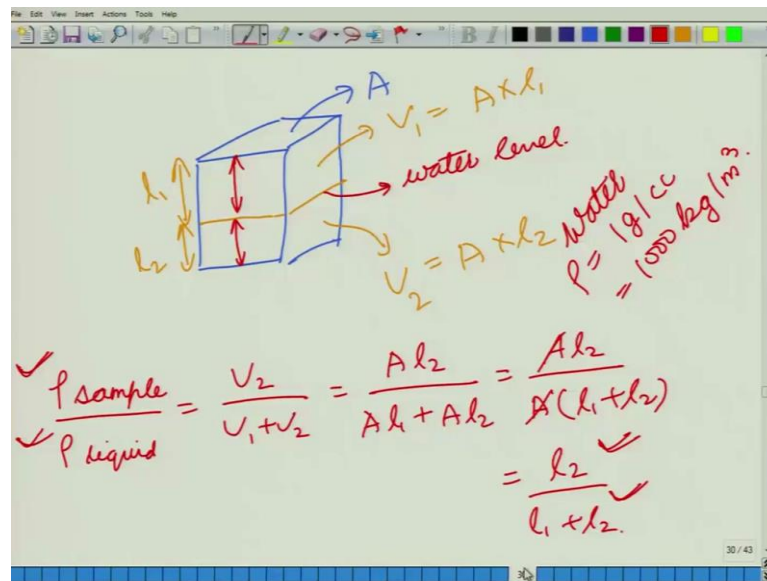 File Edit View Insert Actions Tools Help
B I
A
V₁ = A×l₁
l₁
water level.
l₂
V₂ = A×l₂
Water
ρ = 1g/cc
= 1000 kg/m³.
ρ sample / ρ liquid = V₂ / (V₁+V₂) = Al₂ / (Al₁+Al₂) = Al₂ / (A(l₁+l₂))
= l₂ / (l₁+l₂).
30 / 43